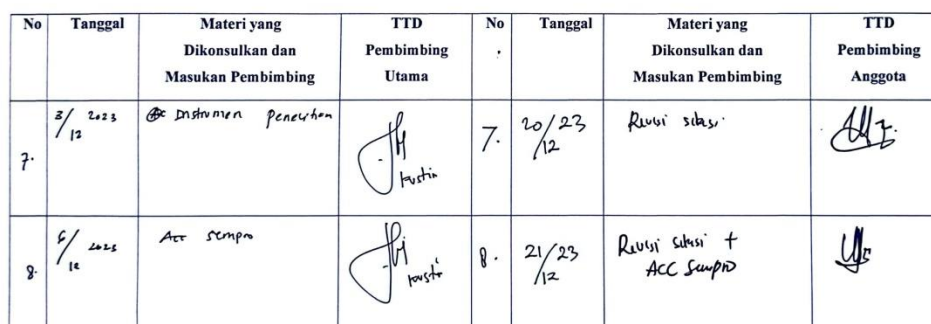 No Tanggal Materi yang Dikonsulkan dan Masukan Pembimbing TTD Pembimbing Utama No . Tanggal Materi yang Dikonsulkan dan Masukan Pembimbing TTD Pembimbing Anggota
7. 3/12 2023 Acc Instrumen penelitian 7. 20/23 12 Revisi sitasi
8. 6/12 2023 Acc sempro 8. 21/23 12 Revisi sitasi + ACC Sempro